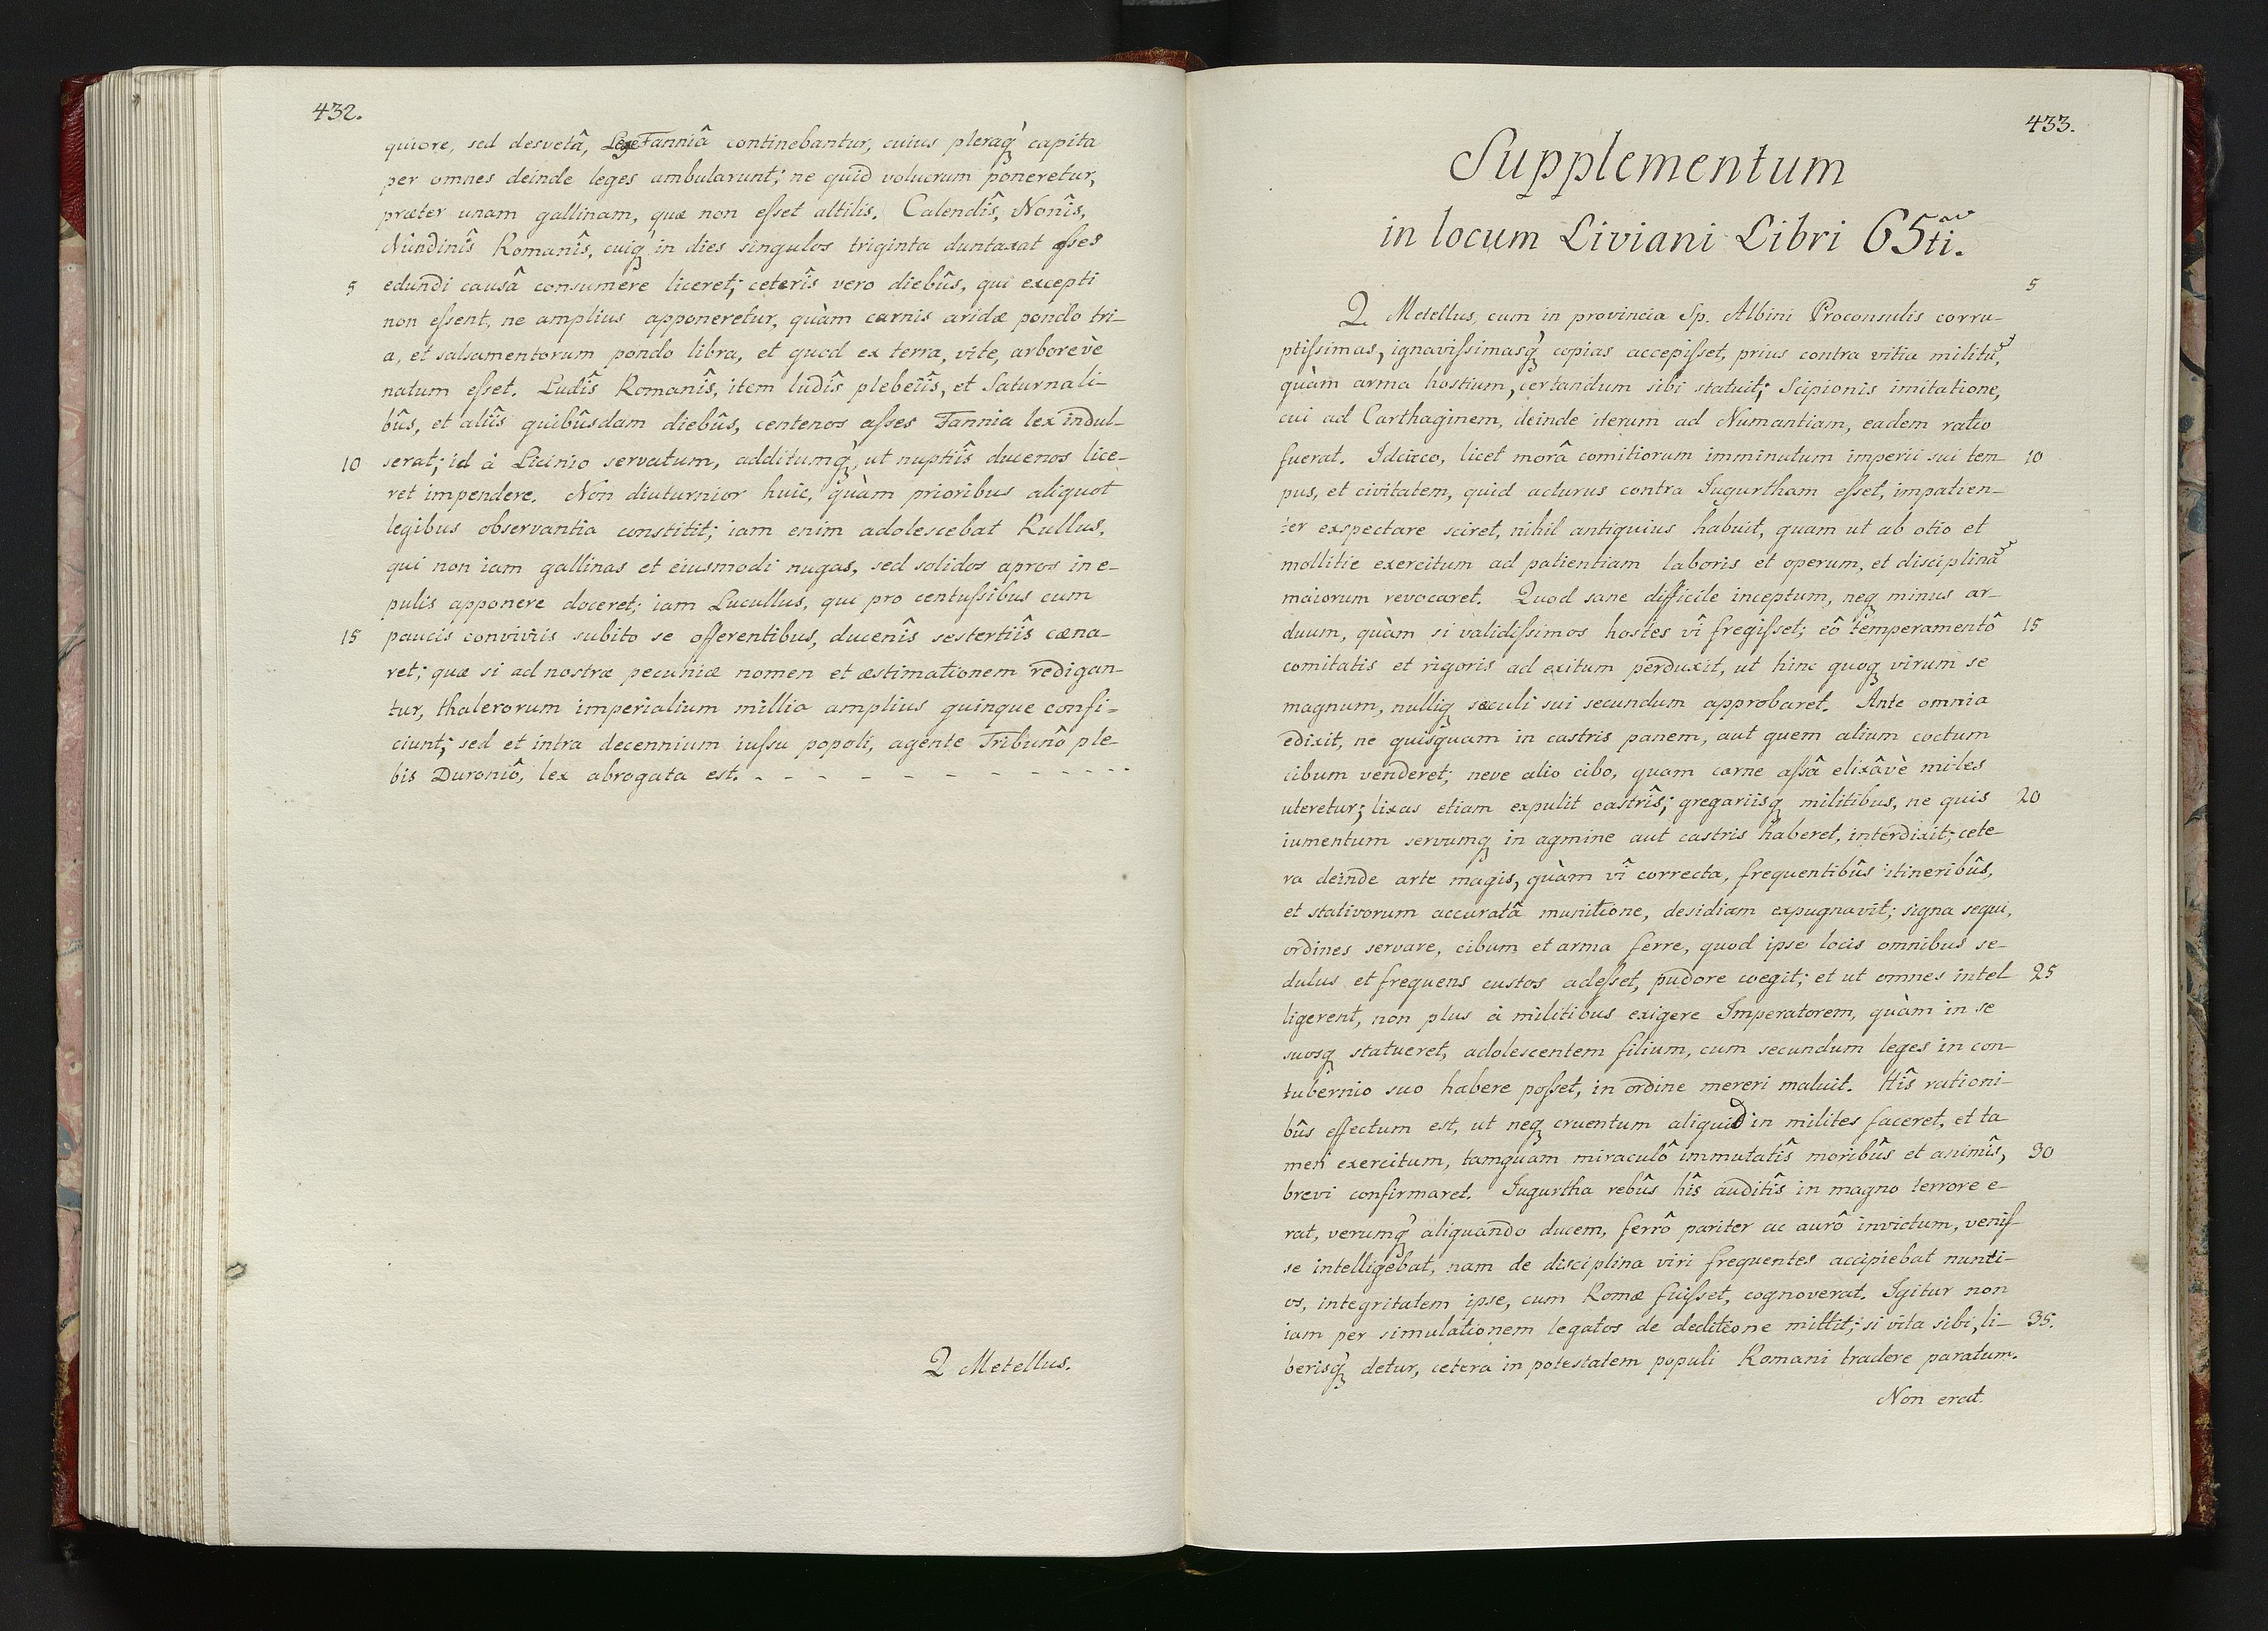 432.
quiore, sed desvetâ, Lege Fanniâ continebantur, cuius pleraq́ꝫ capita
per omnes deinde leges ambularunt; ne quid volucrum poneretur,
præter unam gallinam, quæ non eſset altilis. Calendîs, Nonîs,
Nundinîs Romanîs, cuiqꝫ in dies singulos triginta duntaxat aſses
5 edundi causâ consumere liceret; ceterîs vero diebûs, qui excepti
non eſsent, ne amplius apponeretur, quàm carnis aridæ pondo tri-
a, et salsamentorum pondo libra, et quod ex terra, vite, arborevè
natum eſset. Ludîs Romanîs, item ludîs plebeiîs, et Saturnali-
bûs, et aliîs quibûsdam diebûs, centenos aſses Fannia lex indul-
10 serat; id à Licinio servatum, additumq́ꝫ, ut nuptiîs ducenos lice-
ret impendere. Non diuturnior huic, quàm prioribus aliquot
legibus observantia constitit; iam enim adolescebat Rullus,
qui non iam gallinas et eiusmodi nugas, sed solidos apros in e-
pulis apponere doceret; iam Lucullus, qui pro centuſsibus cum
15 paucis conviviis subito se offerentibus, ducenîs sestertiîs cæna-
ret; quæ si ad nostræ pecuniæ nomen et æstimationem redigan-
tur, thalerorum imperialium millia amplius quinque confi-
ciunt; sed et intra decennium iuſsu populi, agente Tribunô ple-
bis Duroniô, lex abrogata est. - - - - - - - - - - - -
Q Metellus.
433.
Supplementum
in locum Liviani Libri 65ti.
5
Q. Metellus, cum in provincia Sp. Albini Proconsulis corru-
ptiſsimas, ignaviſsimasq́ꝫ copias accepiſset, prius contra vitia militũ,
quàm arma hostium, certandum sibi statuit; Scipionis imitatione,
cui ad Carthaginem, deinde iterum ad Numantiam, eadem ratio
fuerat. Idcirco, licet morâ comitiorum imminutum imperii sui tem- 10
pus, et civitatem, quid acturus contra Iugurtham eſset, impatien-
ter exspectare sciret, nihil antiquius habuit, quam ut ab otio et
mollitie exercitum ad patientiam laboris et operum, et disciplinã
maiorum revocaret. Quod sane difficile inceptum, neqꝫ minus ar-
duum, quàm si validiſsimos hostes vî fregiſset; eô temperamentô 15
comitatis et rigoris ad exitum perduxit, ut hinc quoqꝫ virum se
magnum, nulliqꝫ seculi sui secundum approbaret. Ante omnia
edixit, ne quisquam in castris panem, aut quem alium coctum
cibum venderet; neve alio cibo, quam carne aſsâ elixâvè miles
uteretur; lixas etiam expulit castrîs; gregariisqꝫ militibus, ne quis 20
iumentum servumqꝫ in agmine aut castris haberet, interdixit; cete-
ra deinde arte magis, quàm vî correcta, frequentibûs itineribûs,
et stativorum accuratâ munitione, desidiam expugnavit; signa sequi,
ordines servare, cibum et arma ferre, quod ipse locis omnibus se-
dulus et frequens custos adeſset, pudore coegit; et ut omnes intel 25
ligerent, non plus à militibus exigere Imperatorem, quàm in se
suosqꝫ statueret, adolescentem filium, cum secundum leges in con-
tubernio suo habere poſset, in ordine mereri maluit. Hîs rationi-
bûs effectum est, ut neqꝫ cruentum aliquid in milites faceret, et ta
men exercitum, tamquam miraculô immutatîs moribûs et animîs, 30
brevi confirmaret. Iugurtha rebûs hîs auditîs in magno terrore e-
rat, verumq́ꝫ aliquando ducem, ferrô pariter ac aurô invictum, veniſ-
se intelligebat, nam de disciplina viri frequentes accipiebat nunti-
os, integritatem ipse, cum Romæ fuiſset, cognoverat. Igitur non
iam per simulationem legatos de deditione mittit; si vita sibi, li- 35.
berisq́ꝫ detur, cetera in potestatem populi Romani tradere paratum.
Non erat.